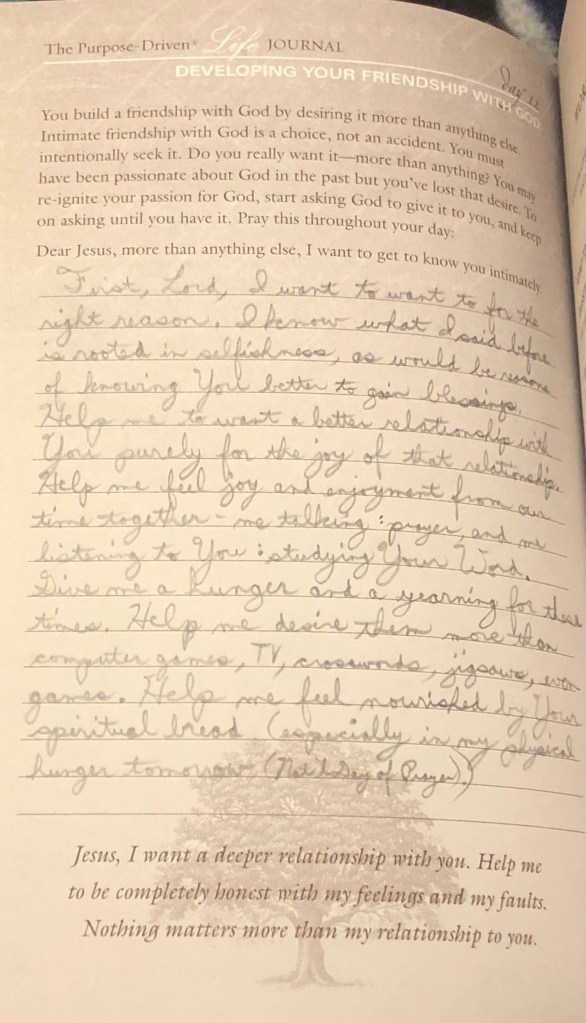 The Purpose-Driven® Life JOURNAL
Day 12
DEVELOPING YOUR FRIENDSHIP WITH GOD
You build a friendship with God by desiring it more than anything else.
Intimate friendship with God is a choice, not an accident. You must
intentionally seek it. Do you really want it—more than anything? You may
have been passionate about God in the past but you've lost that desire. To
re-ignite your passion for God, start asking God to give it to you, and keep
on asking until you have it. Pray this throughout your day:
Dear Jesus, more than anything else, I want to get to know you intimately
First, Lord, I want to want to for the
right reason. I know what I said before
is rooted in selfishness, as would be reasons
of knowing You better to gain blessings.
Help me to want a better relationship with
You purely for the joy of that relationship.
Help me feel joy and enjoyment from our
time together - me talking : prayer, and me
listening to You : studying Your Word.
Give me a hunger and a yearning for these
times. Help me desire them more than
computer games, TV, crosswords, jigsaws, even
games. Help me feel nourished by Your
spiritual bread. (especially in my physical
hunger tomorrow (Nat'l Day of Prayer).)
Jesus, I want a deeper relationship with you. Help me
to be completely honest with my feelings and my faults.
Nothing matters more than my relationship to you.